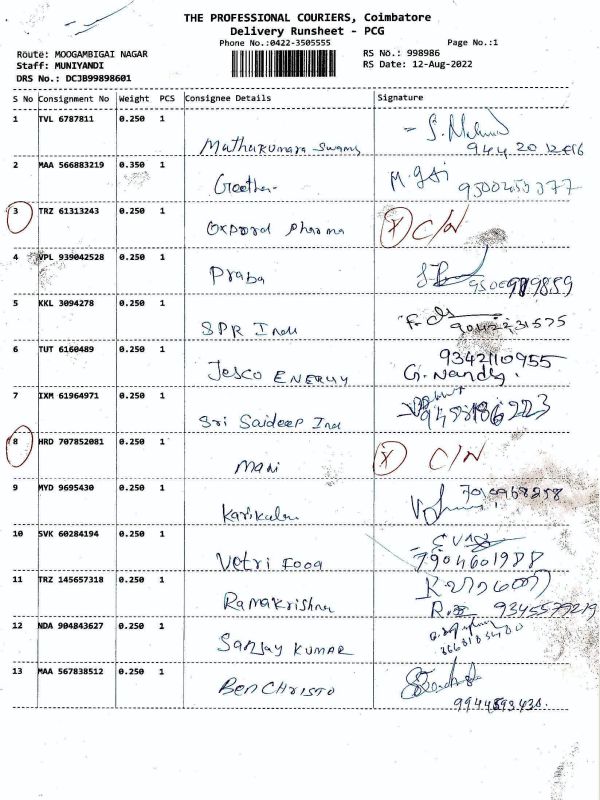 THE PROFESSIONAL COURIERS, Coimbatore
Delivery Runsheet - PCG
Phone No.:0422-3505555 Page No.:1
Route: MOOGAMBIGAI NAGAR RS No.: 998986
Staff: MUNIYANDI RS Date: 12-Aug-2022
DRS No.: DCJB99898601
S No Consignment No Weight PCS Consignee Details Signature
1 TVL 6787811 0.250 1
Muthukumara Swamy
2 MAA 566883219 0.350 1
Geetha
3 TRZ 61313243 0.250 1
Oxpord pharma X C/N
4 VPL 939042528 0.250 1
Praba
5 KKL 3094278 0.250 1
SPR Indu 9042231575
6 TUT 6160489 0.250 1 9342110955
Jesco ENERGY G. Nandhu.
7 IXM 61964971 0.250 1
Sri Saideep Ind
8 HRD 707852081 0.250 1
Mani X C/N
9 MYD 9695430 0.250 1
Karikalan
10 SVK 60284194 0.250 1
Vetri Food 7904601988
11 TRZ 145657318 0.250 1
Ramakrishna
12 NDA 904843627 0.250 1
Sanjay KUMAR
13 MAA 567838512 0.250 1
BenCHRISTO